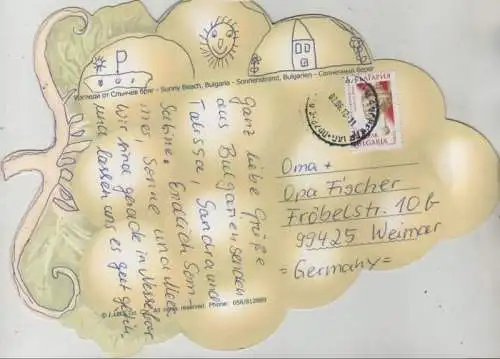 Изгледи от Слънчев бряг – Sunny Beach, Bulgaria – Sonnenstrand, Bulgarien – Солнечный берег
Ganz liebe Grüße
aus Bulgarien senden
Talissa, Sandra und
Sabine. Endlich Som-
mer, Sonne und Meer.
Wir sind gerade in Nessebar
und lassen uns es gut gehn.
All rights reserved. Phone: 056/812889
БЪЛГАРИЯ
BULGARIA
Oma +
Opa Fischer
Fröbelstr. 10 b
99425 Weimar
= Germany =